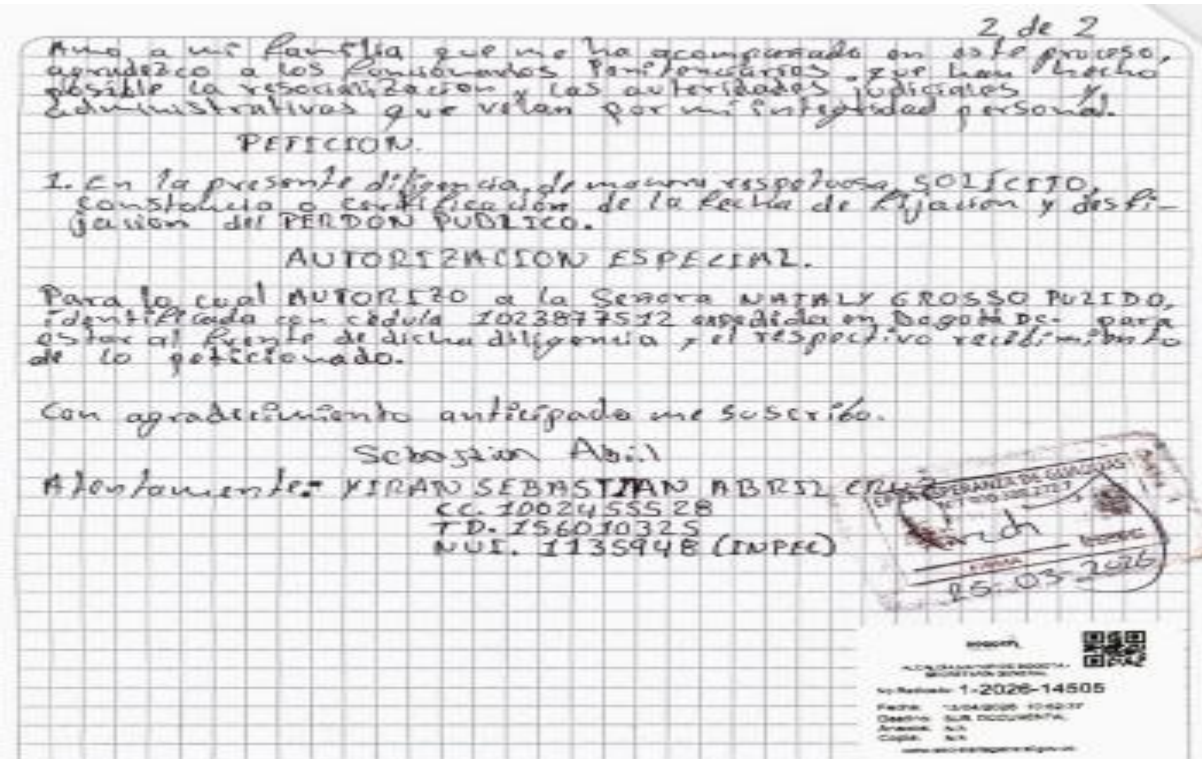 2 de 2
Amo a mi familia que me ha acompañado en este proceso,
agradezco a los funcionarios Penitenciarios, que han hecho
posible la resocialización y las autoridades judiciales y
administrativas que velan por mi integridad personal.
PETICION.
1. En la presente diligencia, de manera respetuosa, SOLICITO,
constancia o certificación de la fecha de fijación y desfi-
jación del PERDON PUBLICO.
AUTORIZACION ESPECIAL.
Para lo cual AUTORIZO a la Señora NATALY GROSSO PULIDO,
identificada con cédula 1023877512 expedida en Bogotá DC. para
estar al frente de dicha diligencia y el respectivo recibimiento
de lo peticionado.
Con agradecimiento anticipado me suscribo.
Sebastian Abril
Atentamente: YIRAN SEBASTIAN ABRIL
CC. 1002455528
TD. 156010325
NUI. 1135948 (INPEC)
ESPERANZA DE GUADUAS
FIRMA
25-03-2026
BOGOTÁ
ALCALDÍA MAYOR DE BOGOTÁ
SECRETARÍA GENERAL
No Radicado: 1-2026-14505
Fecha: 13/04/2026 10:52:37
Destino: SUB. DOCUMENTAL
Anexos: N/A
Copia: N/A